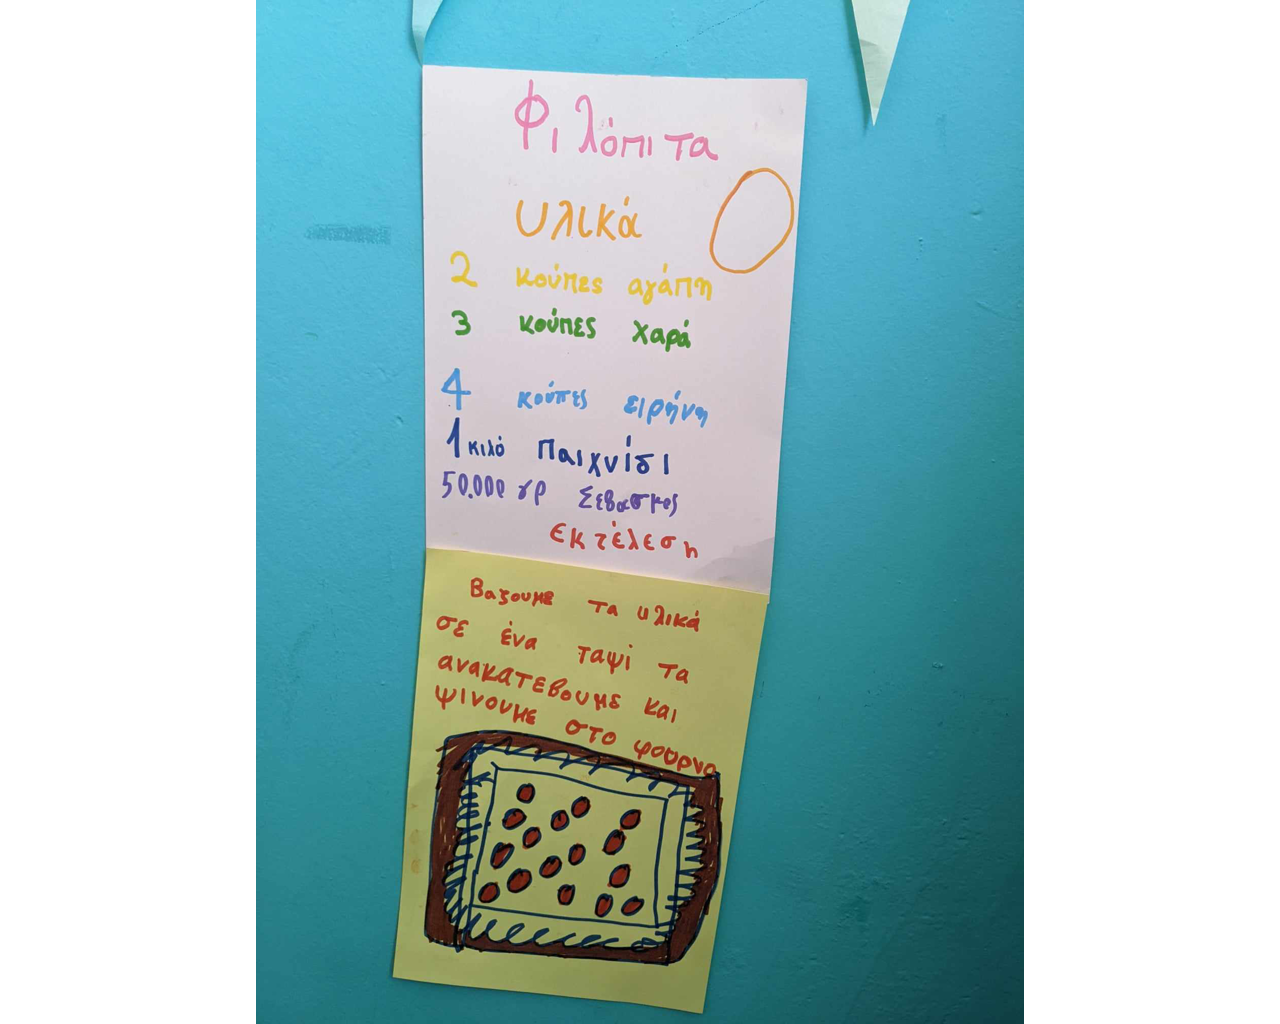 Φιλόπιτα
υλικά
2 κούπες αγάπη
3 κούπες χαρά
4 κούπες ειρήνη
1 κιλό παιχνίδι
50.000 γρ Σεβασμος
εκτέλεση
Βαζουμε τα υλικά
σε ένα ταψί τα
ανακατεβουμε και
ψινουμε στο φουρνο